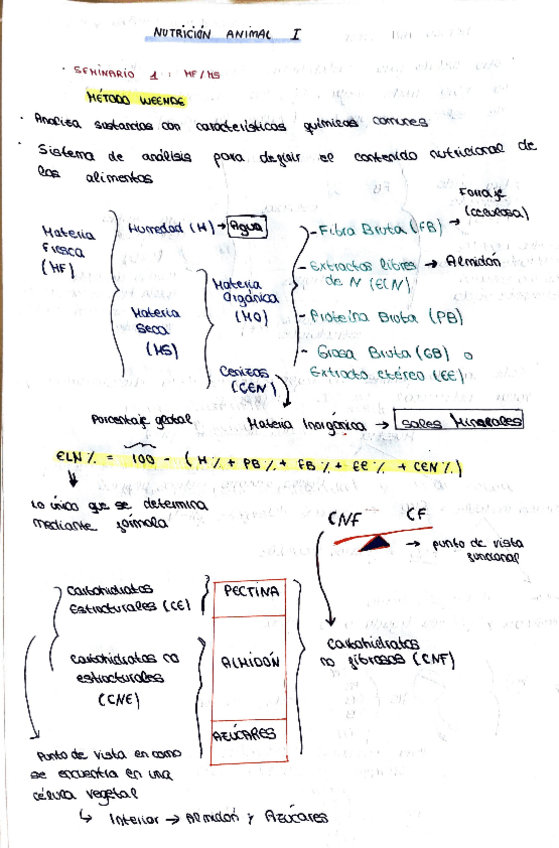 NUTRICIÓN ANIMAL I
· SEMINARIO 1 : MF/MS
MÉTODO WEENDE
· Analiza sustancias con características químicas comunes
· Sistema de análisis para definir el contenido nutricional de
los alimentos
Materia
Fresca
(MF)
Humedad (H) → Agua
Materia
Seca
(MS)
Materia
Orgánica
(MO)
Cenizas
(CEN)
- Fibra Bruta (FB) →
Forraje
(celulosa)
- Extractos libres → Almidón
de N (ELN)
- Proteína Bruta (PB)
- Grasa Bruta (GB) o
Extracto etéreo (EE)
Materia Inorgánica → Sales Minerales
Porcentaje global
ELN % = 100 - ( H % + PB % + FB % + EE % + CEN % )
Lo único que se determina
mediante fórmula
CNF CF
→ punto de vista
funcional
Carbohidratos
Estructurales (CE)
PECTINA
Carbohidratos no
estructurales
(CNE)
ALMIDÓN
AZÚCARES
Carbohidratos
no fibrosos (CNF)
Punto de vista en como
se encuentra en una
célula vegetal
↳ Interior → Almidón y Azúcares